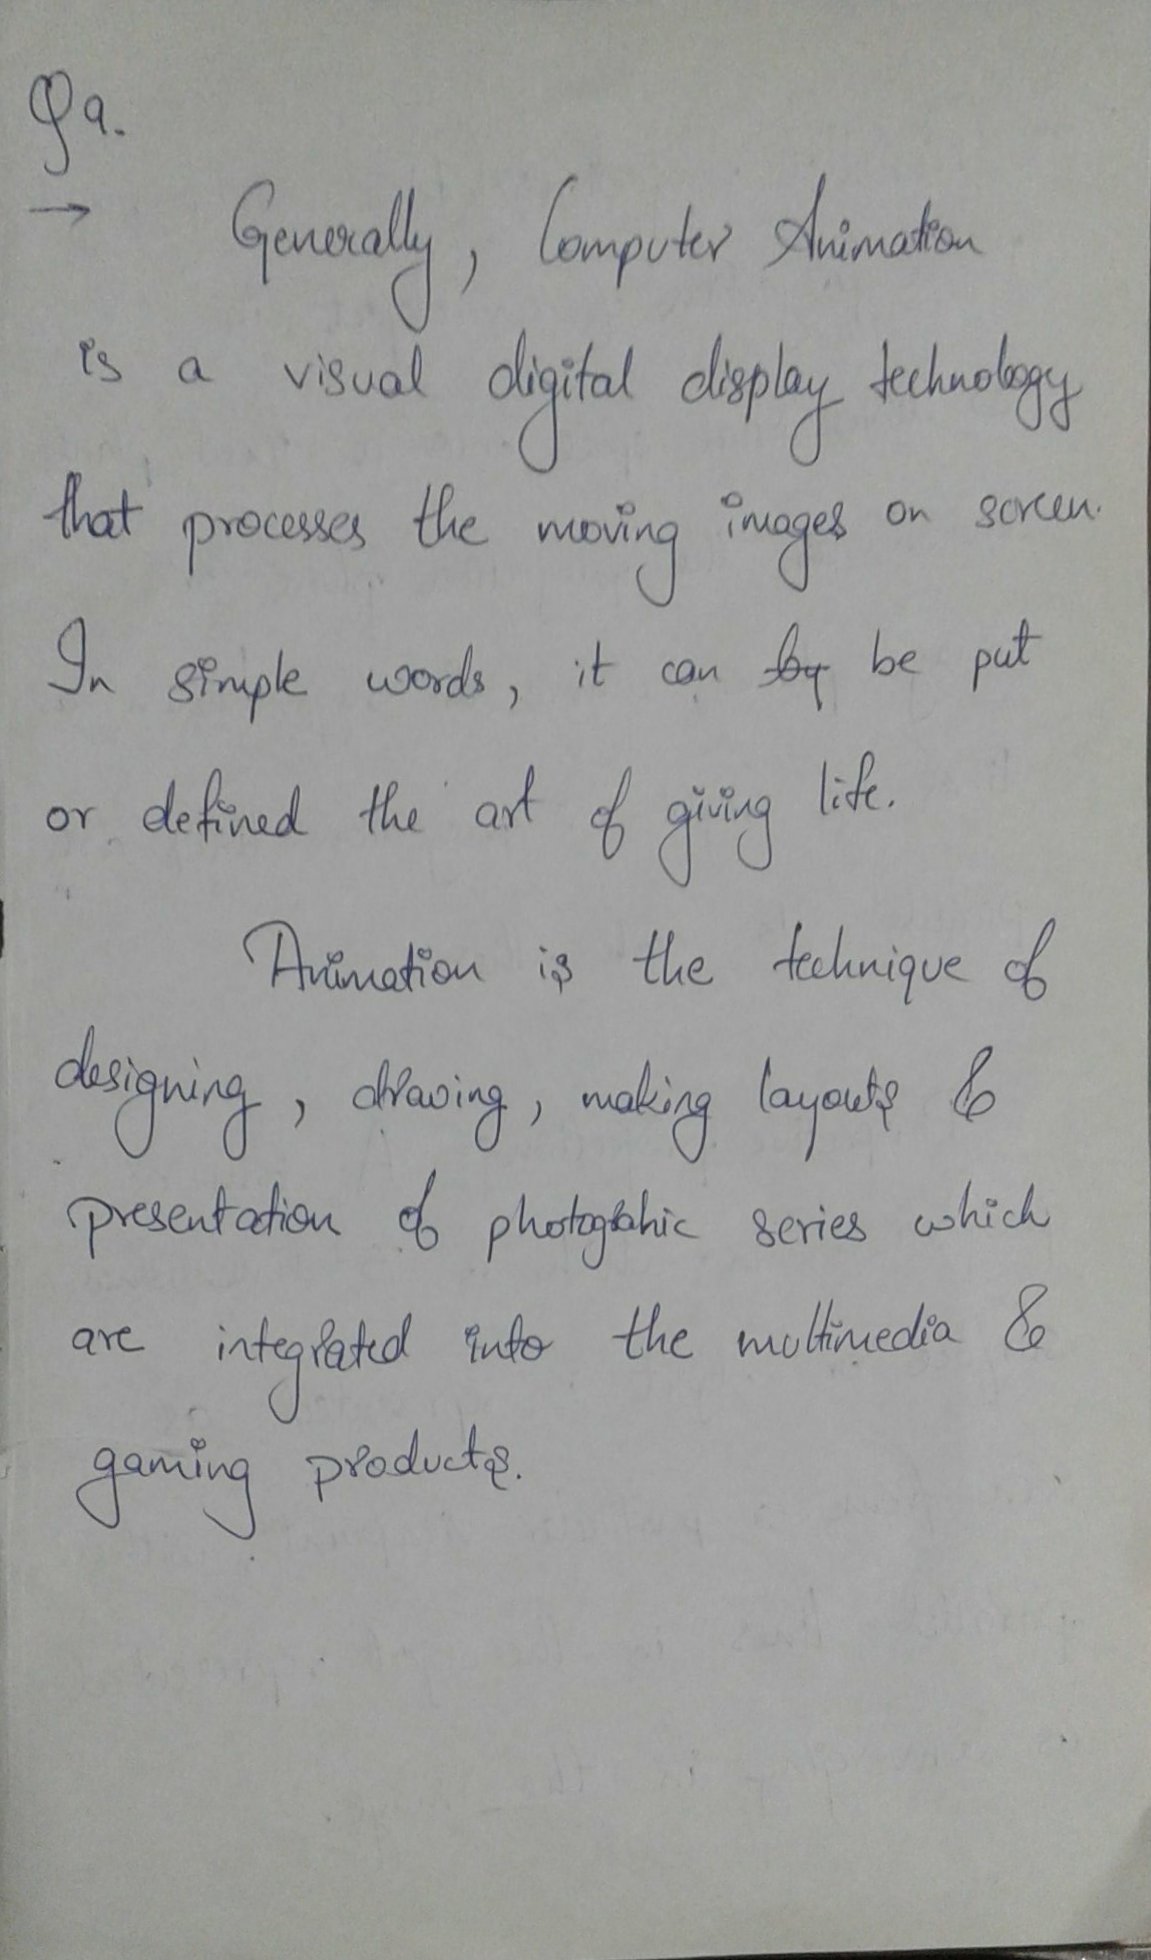 Q9.
→ Generally, Computer Animation
is a visual digital display technology
that processes the moving images on screen.
In simple words, it can by be put
or defined the art of giving life.
Animation is the technique of
designing, drawing, making layouts &
presentation of photograhic series which
are integrated into the multimedia &
gaming products.